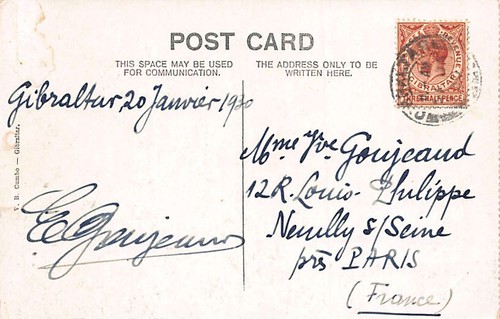 POST CARD
THIS SPACE MAY BE USED
FOR COMMUNICATION.
THE ADDRESS ONLY TO BE
WRITTEN HERE.
Gibraltar 20 Janvier 1930
E Goujeaud
Mme Vve Goujeaud
12 R. Louis-Philippe
Neuilly s/Seine
près PARIS
(France)
V. B. Cumbo — Gibraltar.
REVENUE
GIBRALTAR
THREE HALFPENCE